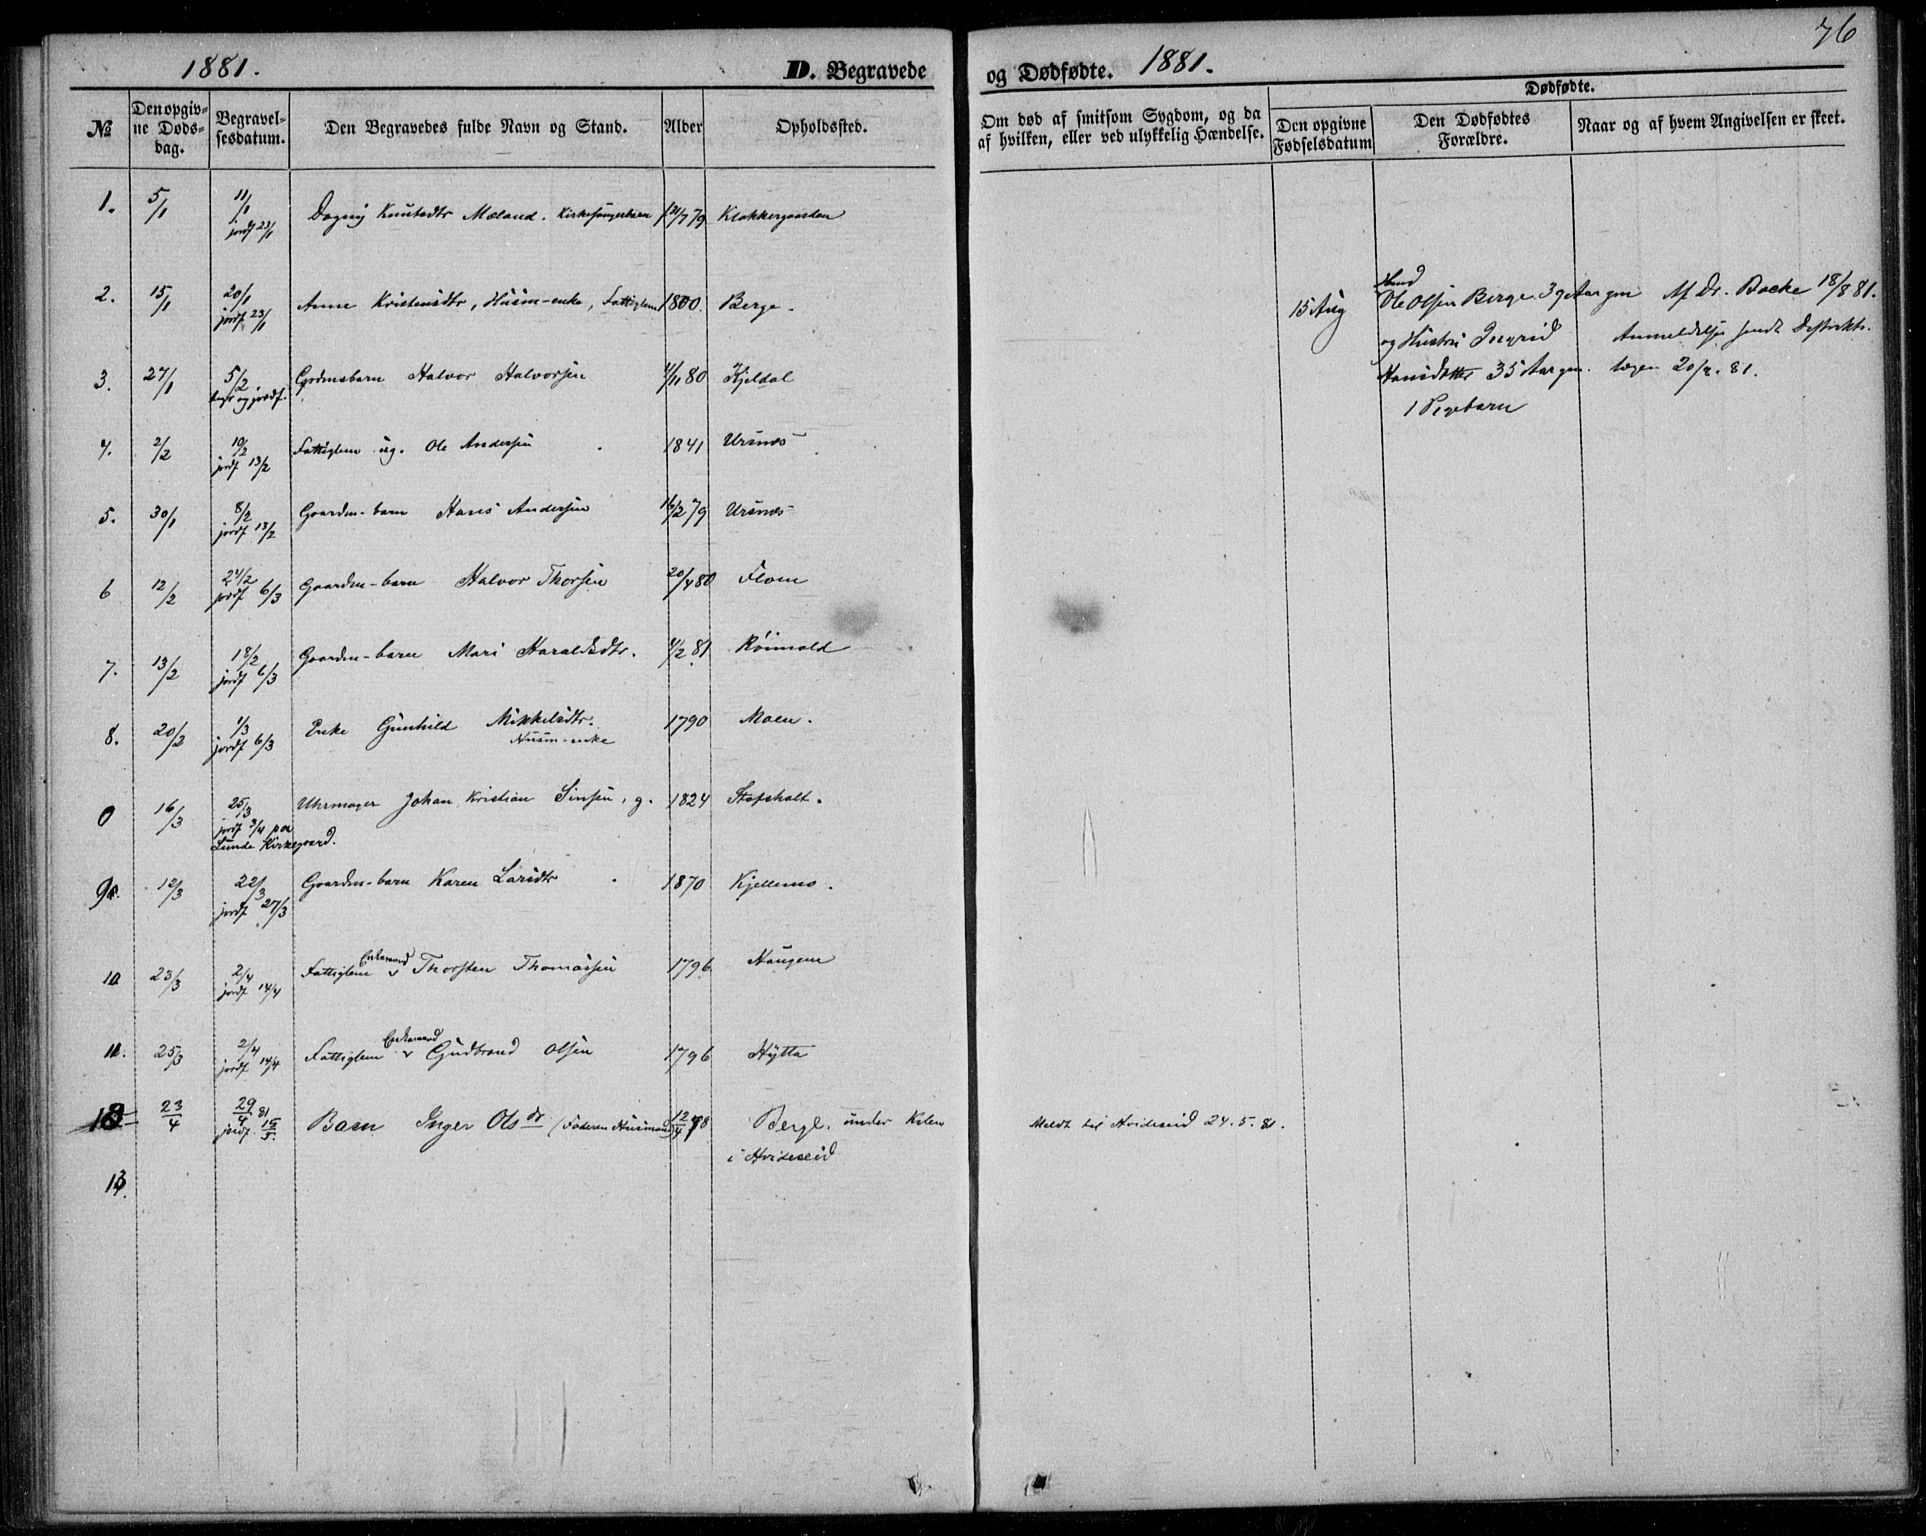 76
1881. D. Begravede og Dødfødte. 1881.
No Den opgivne Døds-dag. Begravelsesdatum. Den Begravedes fulde Navn og Stand. Alder Opholdssted. Om død af smitsom Sygdom, og da af hvilken, eller ved ulykkelig Hændelse. Dødfødte. Den opgivne Fødselsdatum Den Dødfødtes Forældre. Naar og af hvem Angivelsen er skeet.
1. 5/1 11/1 jordf 23/1 Dagny Knutsdtr Mæland. Kirkesangerbarn 21/7 79 Klokkergaarden
2. 15/1 20/1 jordf 23/1 Anne Kristensdtr, Husm-enke, Fattiglem 1800. Berge.
15 Aug Husmd Ole Olsen Berge 39 Aar gm Af Dr. Backe 18/8 81.
og Hustru Ingrid Anmeldelse sendt Distrikts-
Hansdatter 35 Aar gm. lægen 20/8. 81.
1 Pigebarn
3. 27/1 5/2 begr og jordf. Grdmsbarn Halvor Halvorsen 4/11 80 Kjeldal
4. 2/2 10/2 jordf 13/2 Fattiglem ug. Ole Andersen 1841 Ursnes
5. 30/1 8/2 jordf 13/2 Gaardm-barn Hans Andersen 16/2 79 Ursnes
6 12/2 24/2 jordf 6/3 Gaardm-barn Halvor Thorsen 20/4 80 Flom
7. 13/2 18/2 jordf 6/3 Gaardm-barn Mari Haraldsdtr. 4/2 81 Röimold
8. 20/2 1/3 jordf 6/3 Enke Gunhild Mikkelsdtr. 1790 Moen.
Husm-enke
0 16/3 25/3 jordf 3/4 paa Uhrmager Johan Kristian , g. 1824 Stofsholt.
Lunde Kirkegaard.
9. 12/3 22/3 jordf 27/3 Gaardm-barn Karen Larsdtr 1870 Kjellemo.
10 23/3 2/4 jordf 14/4 Fattiglem Enkemand Thorsten Thomassen 1796. Haugen
11. 25/3 2/4 jordf 14/4 Fattiglem Enkemand Gudbrand Olsen 1796 Hytta
12 23/4 29/4 81 jordf. 15/5. Barn Inger Olsdr (Faderen Husmand) 12/4 78 Berge. under Kilen
i Hvideseid
Meldt til Hvideseid 24.5.81.
13.